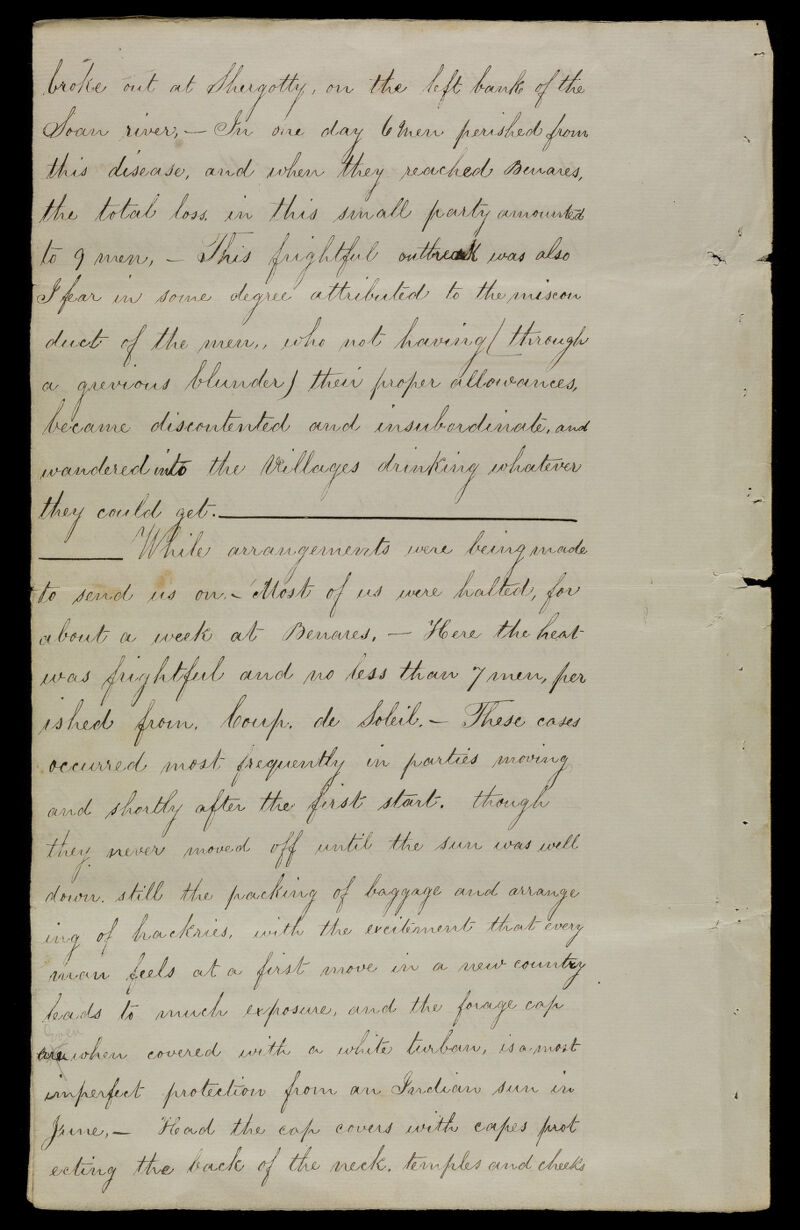 broke out at Shergotty, on the left bank of the
Soan river, — In one day 6 men perished from
this disease, and when they reached Benares,
the total loss in this small party amounted
to 9 men, — This frightful outbreak was also
I fear in some degree attributed to the miscon
duct of the men,, who not having ( through
a grevious blunder ) their proper allowances,
became discontented and insubordinate, and
wandered into the Villages drinking whatever
they could get.
While arrangements were being made
to send us on. — Most of us were halted, for
about a week at Benares, — Here the heat
was frightful and no less than 7 men, per
ished from. Coup. de Soleil. — These cases
occurred most frequently in parties moving
and shortly after the first start. though
they never moved off until the sun was well
down. still the packing of baggage and arrange
ing of hackries, with the excitement that every
man feels at a first move in a new country
leads to much exposure, and the forage cap
Even
are when covered with a white turban, is a most
imperfect protection from an Indian sun in
June, — Had the cap covers with capes prot
ecting the back of the neck, temples and cheeks